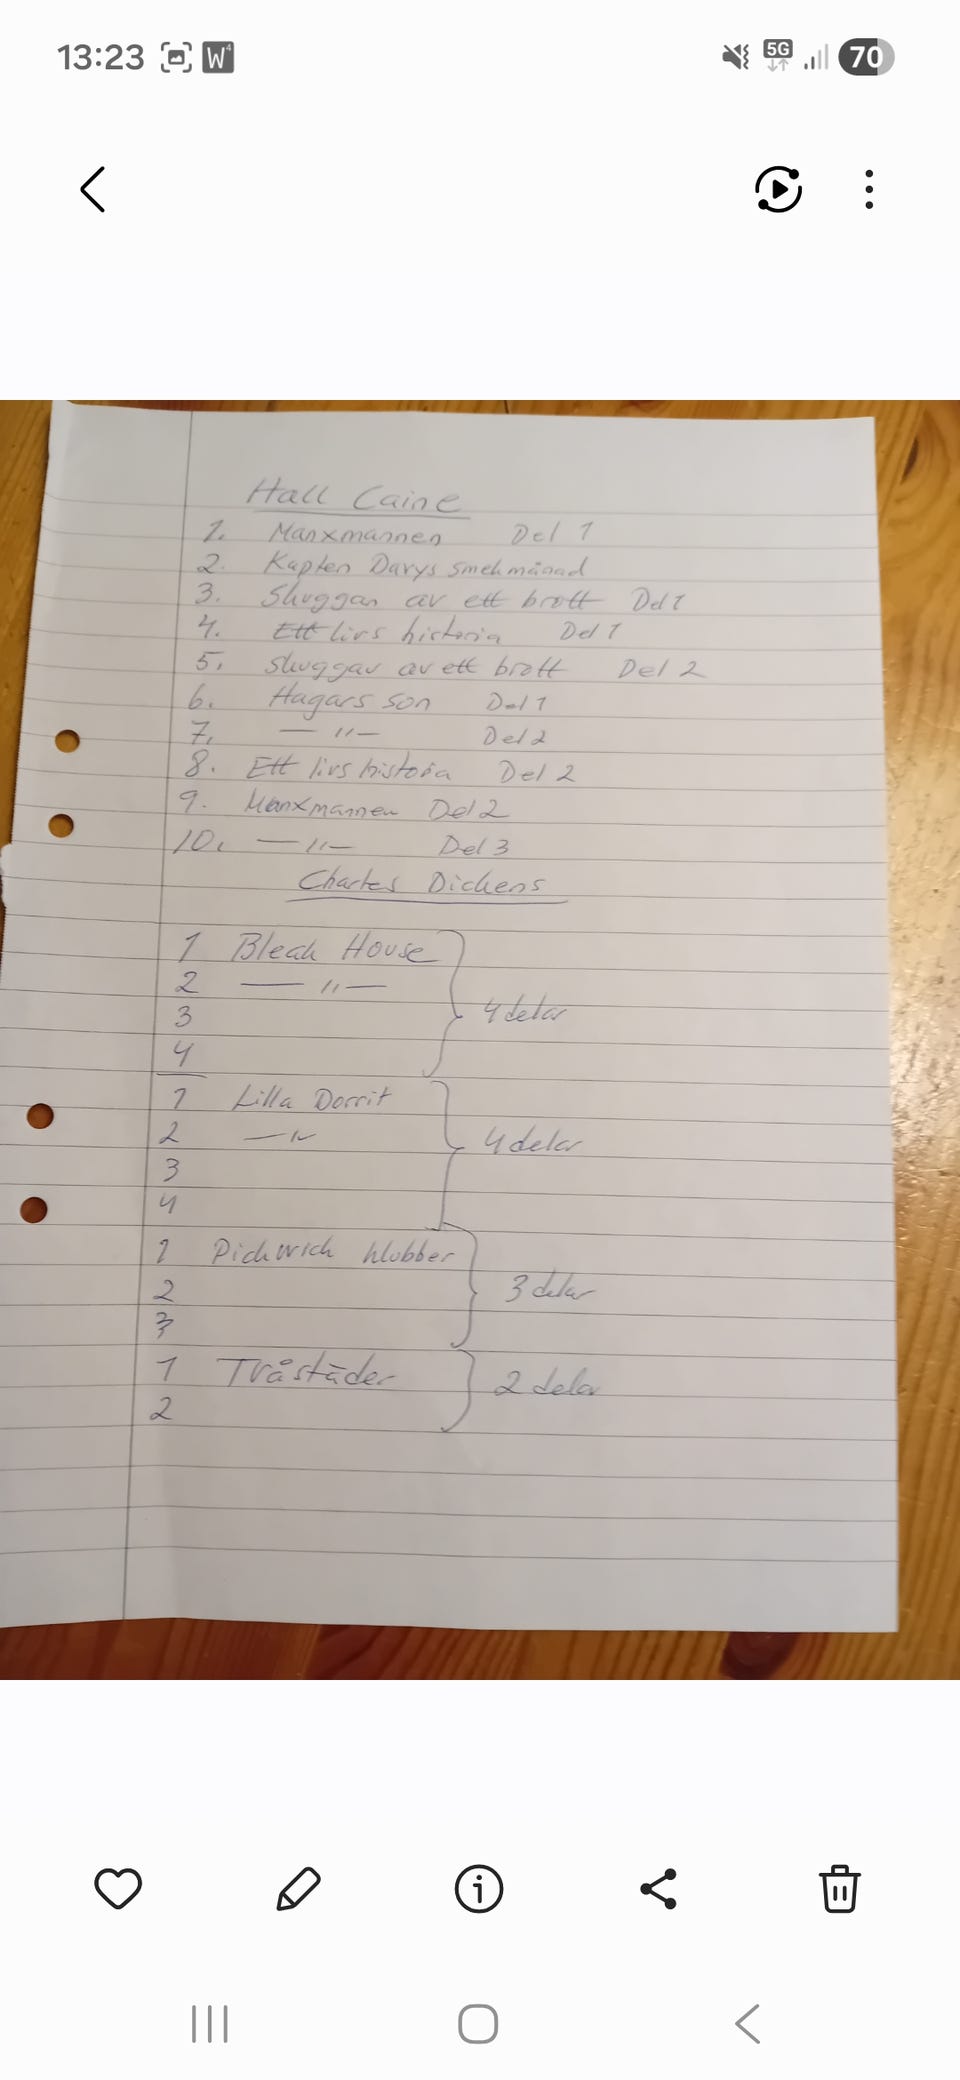 13:23 W4 5G 70
Hall Caine
1. Manxmannen Del 1
2. Kapten Davys smekmånad
3. Skuggan av ett brott Del 1
4. Ett livs historia Del 1
5. Skuggav av ett brott Del 2
6. Hagars son Del 1
7. — " — Del 2
8. Ett livs historia Del 2
9. Manxmannen Del 2
10. — " — Del 3
Charles Dickens
1 Bleak House
2 — " —
3
4 delar
4
1 Lilla Dorrit
2 — "
4 delar
3
4
1 Pickwick klubben
2
3 delar
3
1 Två städer
2 delar
2